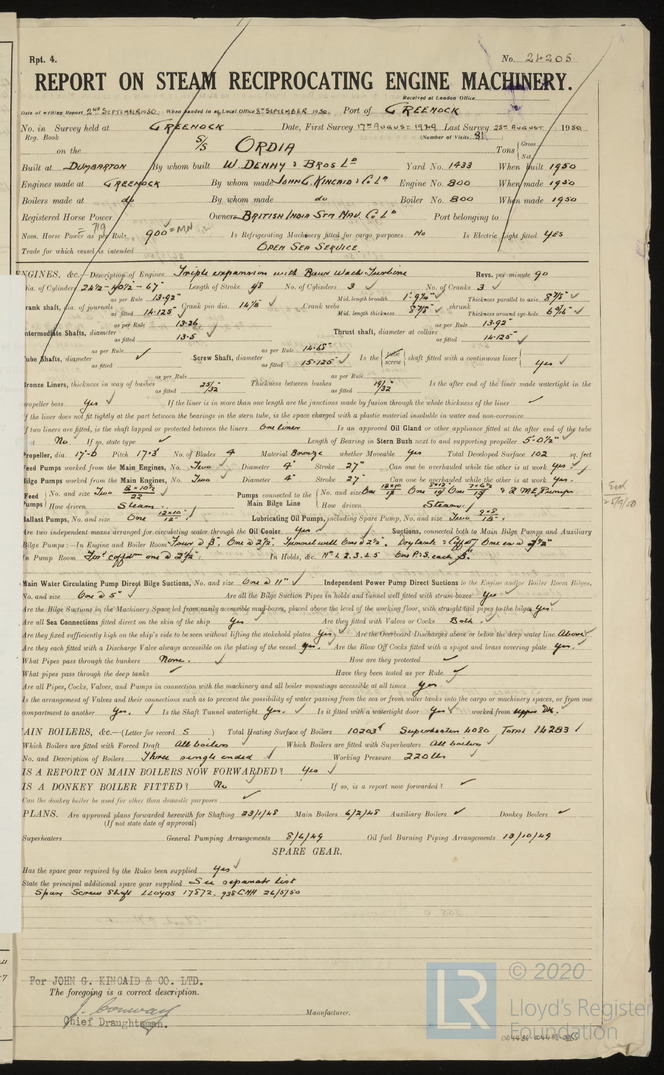 Rpt. 4.
No. 24205
REPORT ON STEAM RECIPROCATING ENGINE MACHINERY.
Received at London Office
Date of writing Report 2ND SEPTEMBER 1950. When handed in at Local Office 8TH SEPTEMBER 1950. Port of GREENOCK
No. in Survey held at GREENOCK Date, First Survey 17TH AUGUST 1949 Last Survey 25TH AUGUST 1950
Reg. Book (Number of Visits 81)
on the S/S ORDIA Tons Gross Net
Built at DUMBARTON By whom built W. DENNY & BROS LD Yard No. 1433 When built 1950
Engines made at GREENOCK By whom made JOHN G. KINCAID & Co LD Engine No. 800 When made 1950
Boilers made at do By whom made do Boiler No. 800 When made 1950
Registered Horse Power Owners BRITISH INDIA STM NAV. Co LD Port belonging to
Nom. Horse Power as per Rule = 719 900 = MN Is Refrigerating Machinery fitted for cargo purposes NO Is Electric Light fitted YES
Trade for which vessel is intended OPEN SEA SERVICE
ENGINES, &c.—Description of Engines Triple expansion with Baur Wach Turbine Revs. per minute 90
Dia. of Cylinders 24½ - 40½ - 67" Length of Stroke 48 No. of Cylinders 3 No. of Cranks 3
Crank shaft, dia. of journals as per Rule 13.92 as fitted 14.125 Crank pin dia. 14⅛ Crank webs Mid. length breadth Mid. length thickness 8⅞ shrunk Thickness parallel to axis 8⅞ Thickness around eye-hole
Intermediate Shafts, diameter as per Rule 13.26 as fitted 13.5 Thrust shaft, diameter at collars as per Rule 13.92 as fitted 14.125
Tube Shafts, diameter as per Rule as fitted Screw Shaft, diameter as per Rule 14.65 as fitted 15.125 Is the tube screw shaft fitted with a continuous liner Yes
Bronze Liners, thickness in way of bushes as per Rule as fitted 25/32 Thickness between bushes as per Rule as fitted 19/32 Is the after end of the liner made watertight in the
propeller boss Yes If the liner is in more than one length are the junctions made by fusion through the whole thickness of the liner
If the liner does not fit tightly at the part between the bearings in the stern tube, is the space charged with a plastic material insoluble in water and non-corrosive
If two liners are fitted, is the shaft lapped or protected between the liners One liner Is an approved Oil Gland or other appliance fitted at the after end of the tube
No. If so, state type Length of Bearing in Stern Bush next to and supporting propeller 5'-0½"
Propeller, dia. 17'-6 Pitch 17'-3 No. of Blades 4 Material Bronze whether Moveable Yes Total Developed Surface 102 sq. feet
Feed Pumps worked from the Main Engines, No. Two Diameter 4" Stroke 27" Can one be overhauled while the other is at work Yes
Bilge Pumps worked from the Main Engines, No. Two Diameter 4" Stroke 27" Can one be overhauled while the other is at work Yes.
Feed Pumps No. and size Two How driven Steam Pumps connected to the Main Bilge Line No. and size One One One & 2 M.E. Pumps How driven Steam
Ballast Pumps, No. and size One Lubricating Oil Pumps, including Spare Pump, No. and size Two
Are two independent means arranged for circulating water through the Oil Cooler Yes Suctions, connected both to Main Bilge Pumps and Auxiliary
Bilge Pumps:—In Engine and Boiler Room Four @ One @ 2½" Tunnel well One @ 2½"
In Pump Room one @ 2½" In Holds, &c. Nos 1, 2, 3, 4, 5 One P.S. each
Main Water Circulating Pump Direct Bilge Suctions, No. and size One @ 11" Independent Power Pump Direct Suctions to the Engine and/or Boiler Room Bilges,
No. and size One @ 5" Are all the Bilge Suction Pipes in holds and tunnel well fitted with strum boxes Yes
Are the Bilge Suctions in the Machinery Space led from easily accessible mud boxes, placed above the level of the working floor, with straight tail pipes to the bilges Yes.
Are all Sea Connections fitted direct on the skin of the ship Yes Are they fitted with Valves or Cocks Both.
Are they fixed sufficiently high on the ship's side to be seen without lifting the stokehold plates Yes Are the Overboard Discharges above or below the deep water line Above
Are they each fitted with a Discharge Valve always accessible on the plating of the vessel Yes. Are the Blow Off Cocks fitted with a spigot and brass covering plate Yes.
What Pipes pass through the bunkers None. How are they protected
What pipes pass through the deep tanks Have they been tested as per Rule
Are all Pipes, Cocks, Valves, and Pumps in connection with the machinery and all boiler mountings accessible at all times Yes
Is the arrangement of Valves and their connections such as to prevent the possibility of water passing from the sea or from water tanks into the cargo or machinery spaces, or from one
compartment to another Yes. Is the Shaft Tunnel watertight Yes. Is it fitted with a watertight door Yes worked from upper Dk.
MAIN BOILERS, &c.—(Letter for record S) Total Heating Surface of Boilers 10203 Superheaters 4080 Total 14283
Which Boilers are fitted with Forced Draft All boilers Which Boilers are fitted with Superheaters All boilers
No. and Description of Boilers Three single ended Working Pressure 220 lbs
IS A REPORT ON MAIN BOILERS NOW FORWARDED? Yes
IS A DONKEY BOILER FITTED? No If so, is a report now forwarded?
Can the donkey boiler be used for other than domestic purposes
PLANS. Are approved plans forwarded herewith for Shafting 23/1/48 Main Boilers 6/2/48 Auxiliary Boilers Donkey Boilers
(If not state date of approval)
Superheaters General Pumping Arrangements 8/6/49 Oil fuel Burning Piping Arrangements 13/10/49
SPARE GEAR.
Has the spare gear required by the Rules been supplied Yes
State the principal additional spare gear supplied See separate list
Spare Screw Shaft LLOYDS 17572. 938 CHH 26/5/50
For JOHN G. KINCAID & CO. LTD.
The foregoing is a correct description.
J. Conway
Chief Draughtsman.
Manufacturer.
LR
© 2020
Lloyd's Register
Foundation